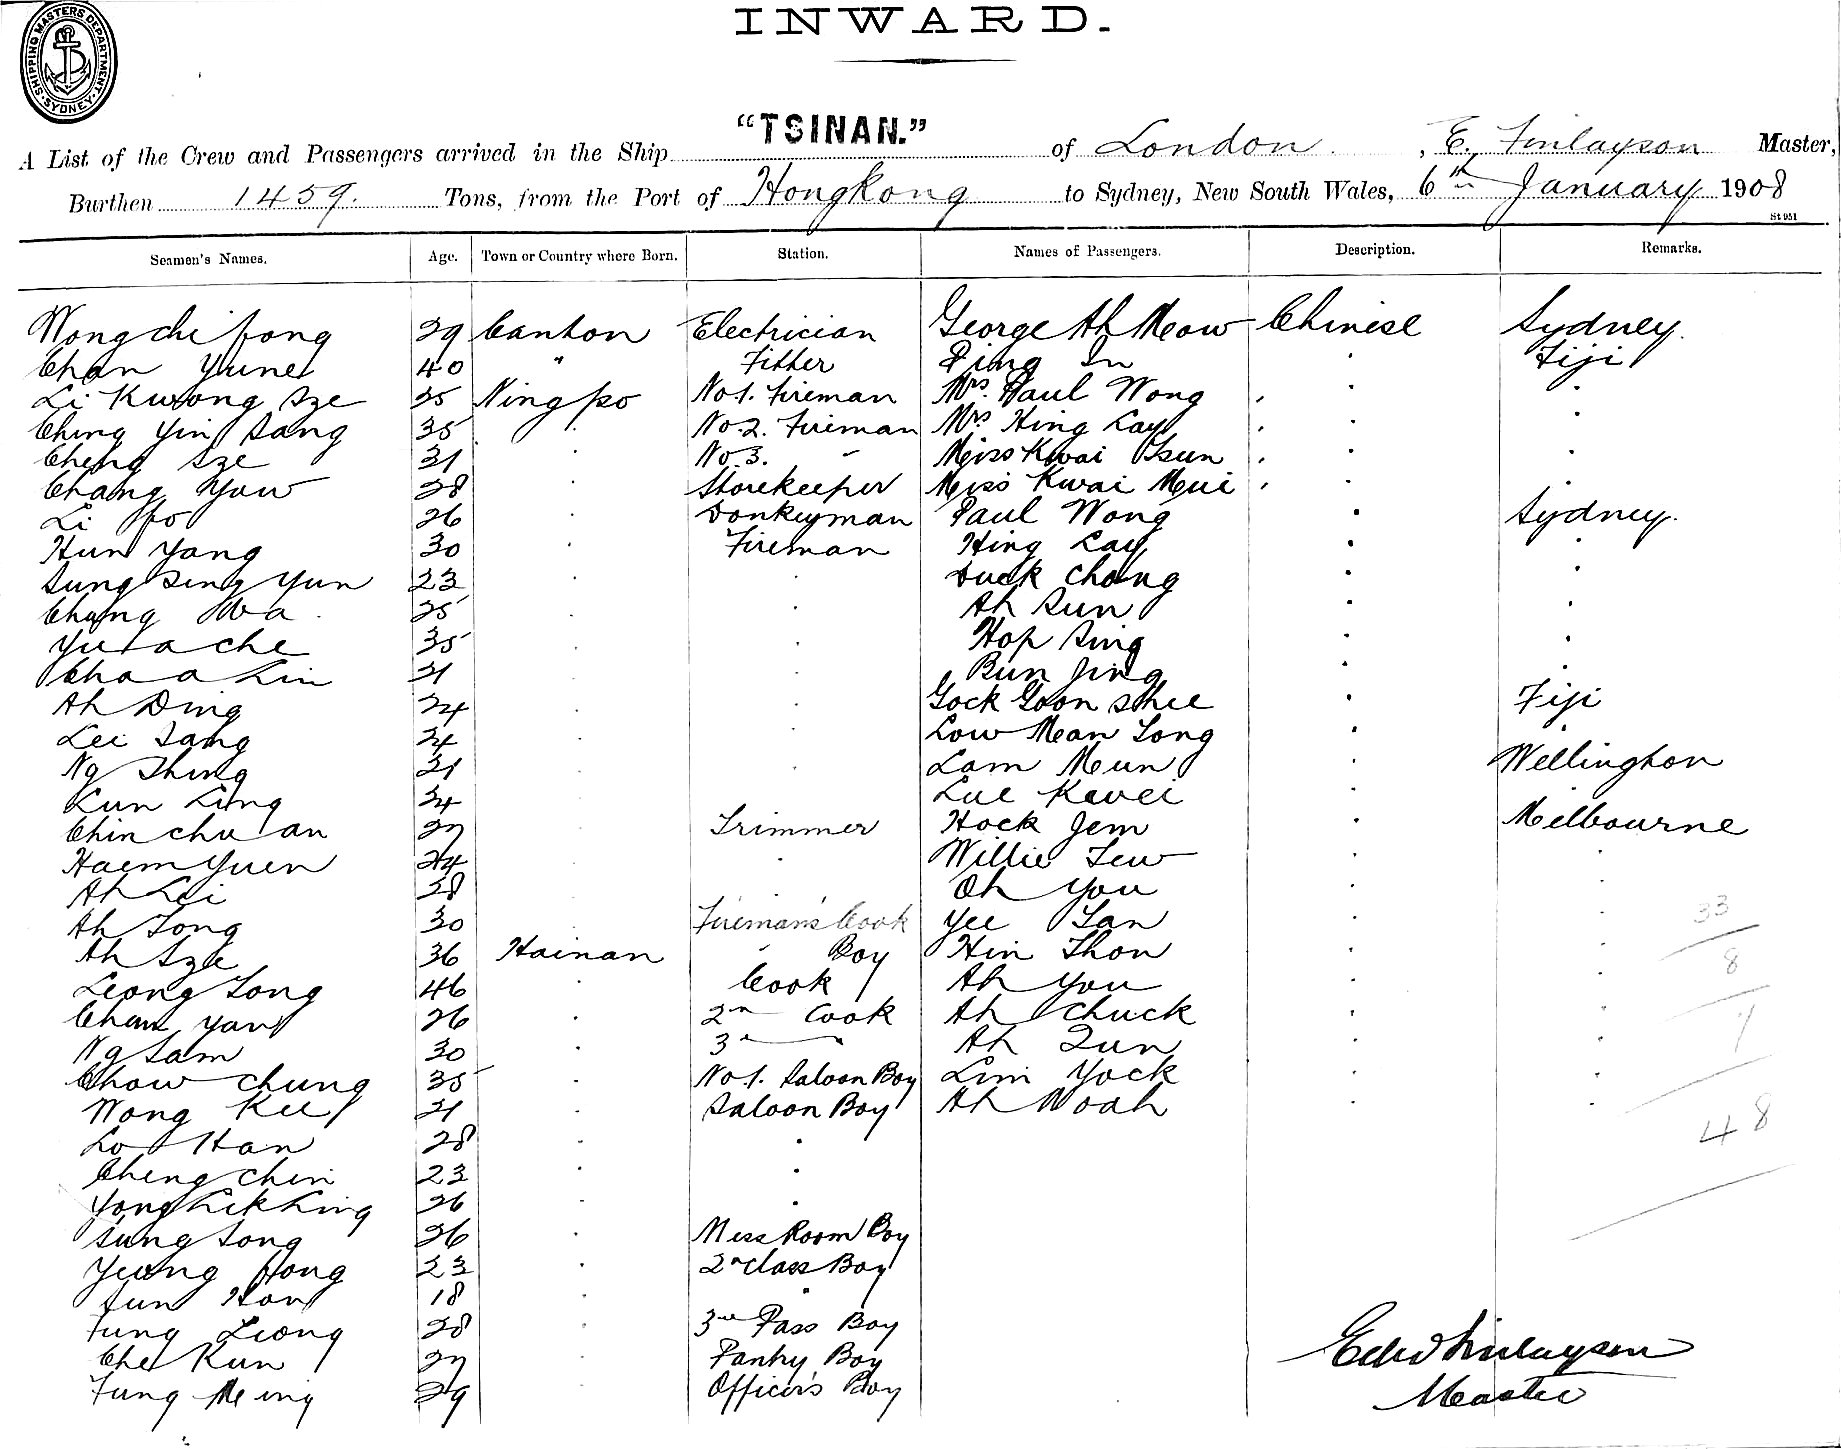 INWARD.
SHIPPING MASTERS DEPARTMENT. SYDNEY.
A List of the Crew and Passengers arrived in the Ship "TSINAN." of London, E. Finlayson Master,
Burthen 1459. Tons, from the Port of Hongkong to Sydney, New South Wales, 6th January 1908
St 951
Seamen's Names. Age. Town or Country where Born. Station. Names of Passengers. Description. Remarks.
Wong chi fong 29 Canton Electrician George Ah Meow Chinese Sydney.
Chan Yune 40 " Fitter Ping In Fiji
Li Kwong Sze 35 Ningpo No 1. Fireman Mrs Paul Wong
Ching Yin Sang 35 No. 2. Fireman Mrs Hing Lay
Cheng Sze 31 No. 3. " Miss Kwai Tsun
Chang Yow 28 Storekeeper Miss Kwai Mui
Li Po 26 Donkeyman Paul Wong Sydney.
Hun Yang 30 Fireman Hing Lay
Sung Sing Yun 23 Duck Chong
Chang Wa 25 Ah Sun
Yu a che 35 Hop Sing
Cha a Lin 31 Bun Jing
Ah Ding 34 Gock Goon Shee Fiji
Lei Sang 34 Low Mean Tong
Ng Shing 31 Lam Mun Wellington
Lun Ling 34 Lue Kawei
Chin chu an 27 Trimmer Hock Jem Melbourne
Haem Yuen 24 Willie Lew
Ah Lei 38 Oh You
Ah Tong 30 Fireman's Cook Yee Lan 33
Ah Sze 36 Hainan " Boy Hin Thon 8
Leong Tong 46 Cook Ah You
Chan Yan 26 2nd Cook Ah Chuck 7
Ng Sam 30 3rd Ah Lun
Chow Chung 35 No 1. Saloon Boy Lim Yock
Wong Kee 31 Saloon Boy Ah Noah 48
Lo Han 28
Cheng Chin 23
Yong Lik Ling 26
Sung Song 36 Mess Room Boy
Yeung Fong 23 2nd Class Boy
Sun Hon 18
Fung Leong 28 3rd Pass Boy
Che Kun 27 Pantry Boy
Fung Meing 29 Officer's Boy
Edwd Finlayson
Master